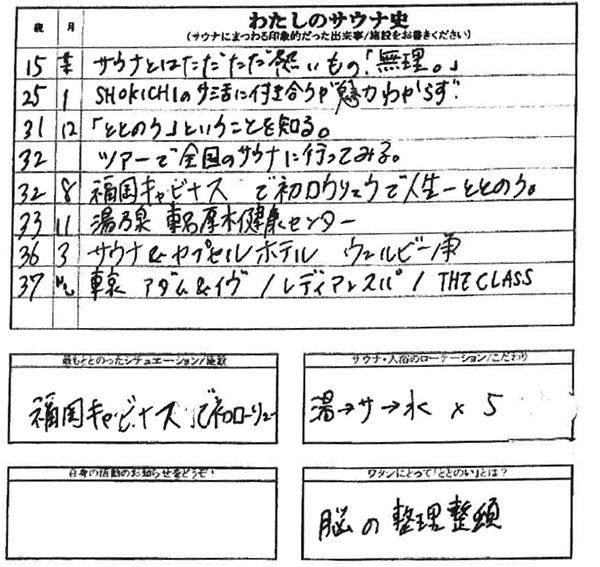 歳 月 わたしのサウナ史
(サウナにまつわる印象的だった出来事/施設をお書きください)
15 サウナとはただただただ熱いもの「無理。」
25 1 SHOKICHIのサ活に付き合うが魅力わからず
31 12 「ととのう」ということを知る。
32 ツアーで全国のサウナに行ってみる。
32 8 福岡キャビナス で初ロウリュウで人生一ととのう。
33 11 湯乃泉 東名厚木健康センター
36 3 サウナ&カプセルホテル ウェルビー
37 東京 アダム&イヴ / レディアンスパ / THE CLASS
最もととのったシチュエーション/施設
福岡キャビナス で初ロウリュー
サウナ・入浴のローテーション/こだわり
湯→サ→水 × 5
自身の活動のお知らせをどうぞ!
ワタシにとって「ととのい」とは?
脳の整理整頓